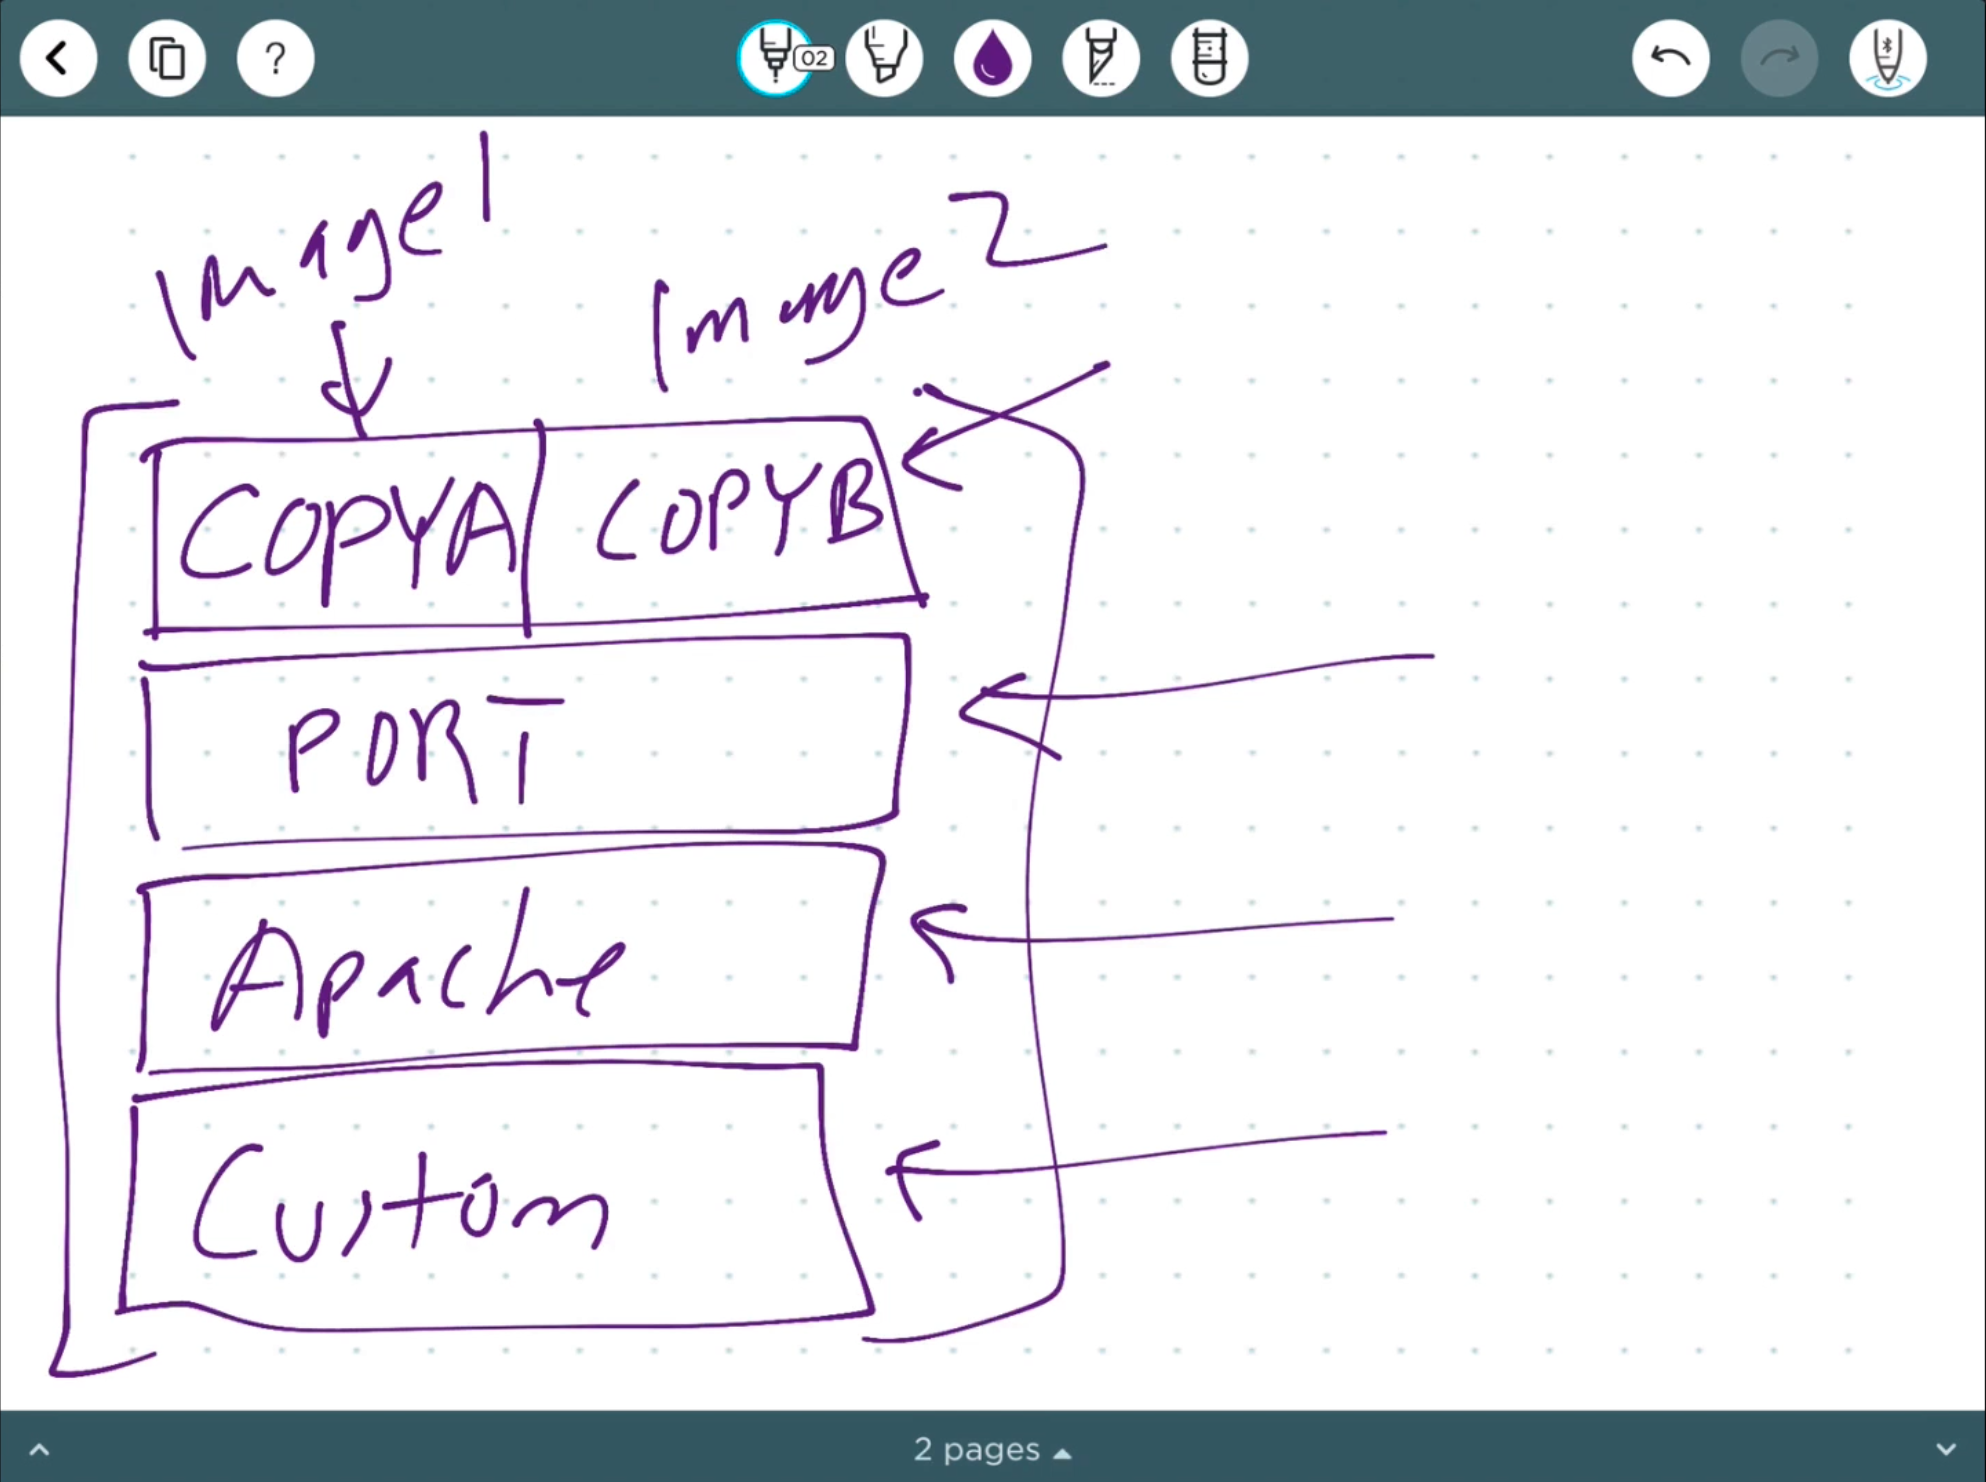 ?
02
Image 1
Image 2
COPYA COPYB
PORT
Apache
Custom
2 pages